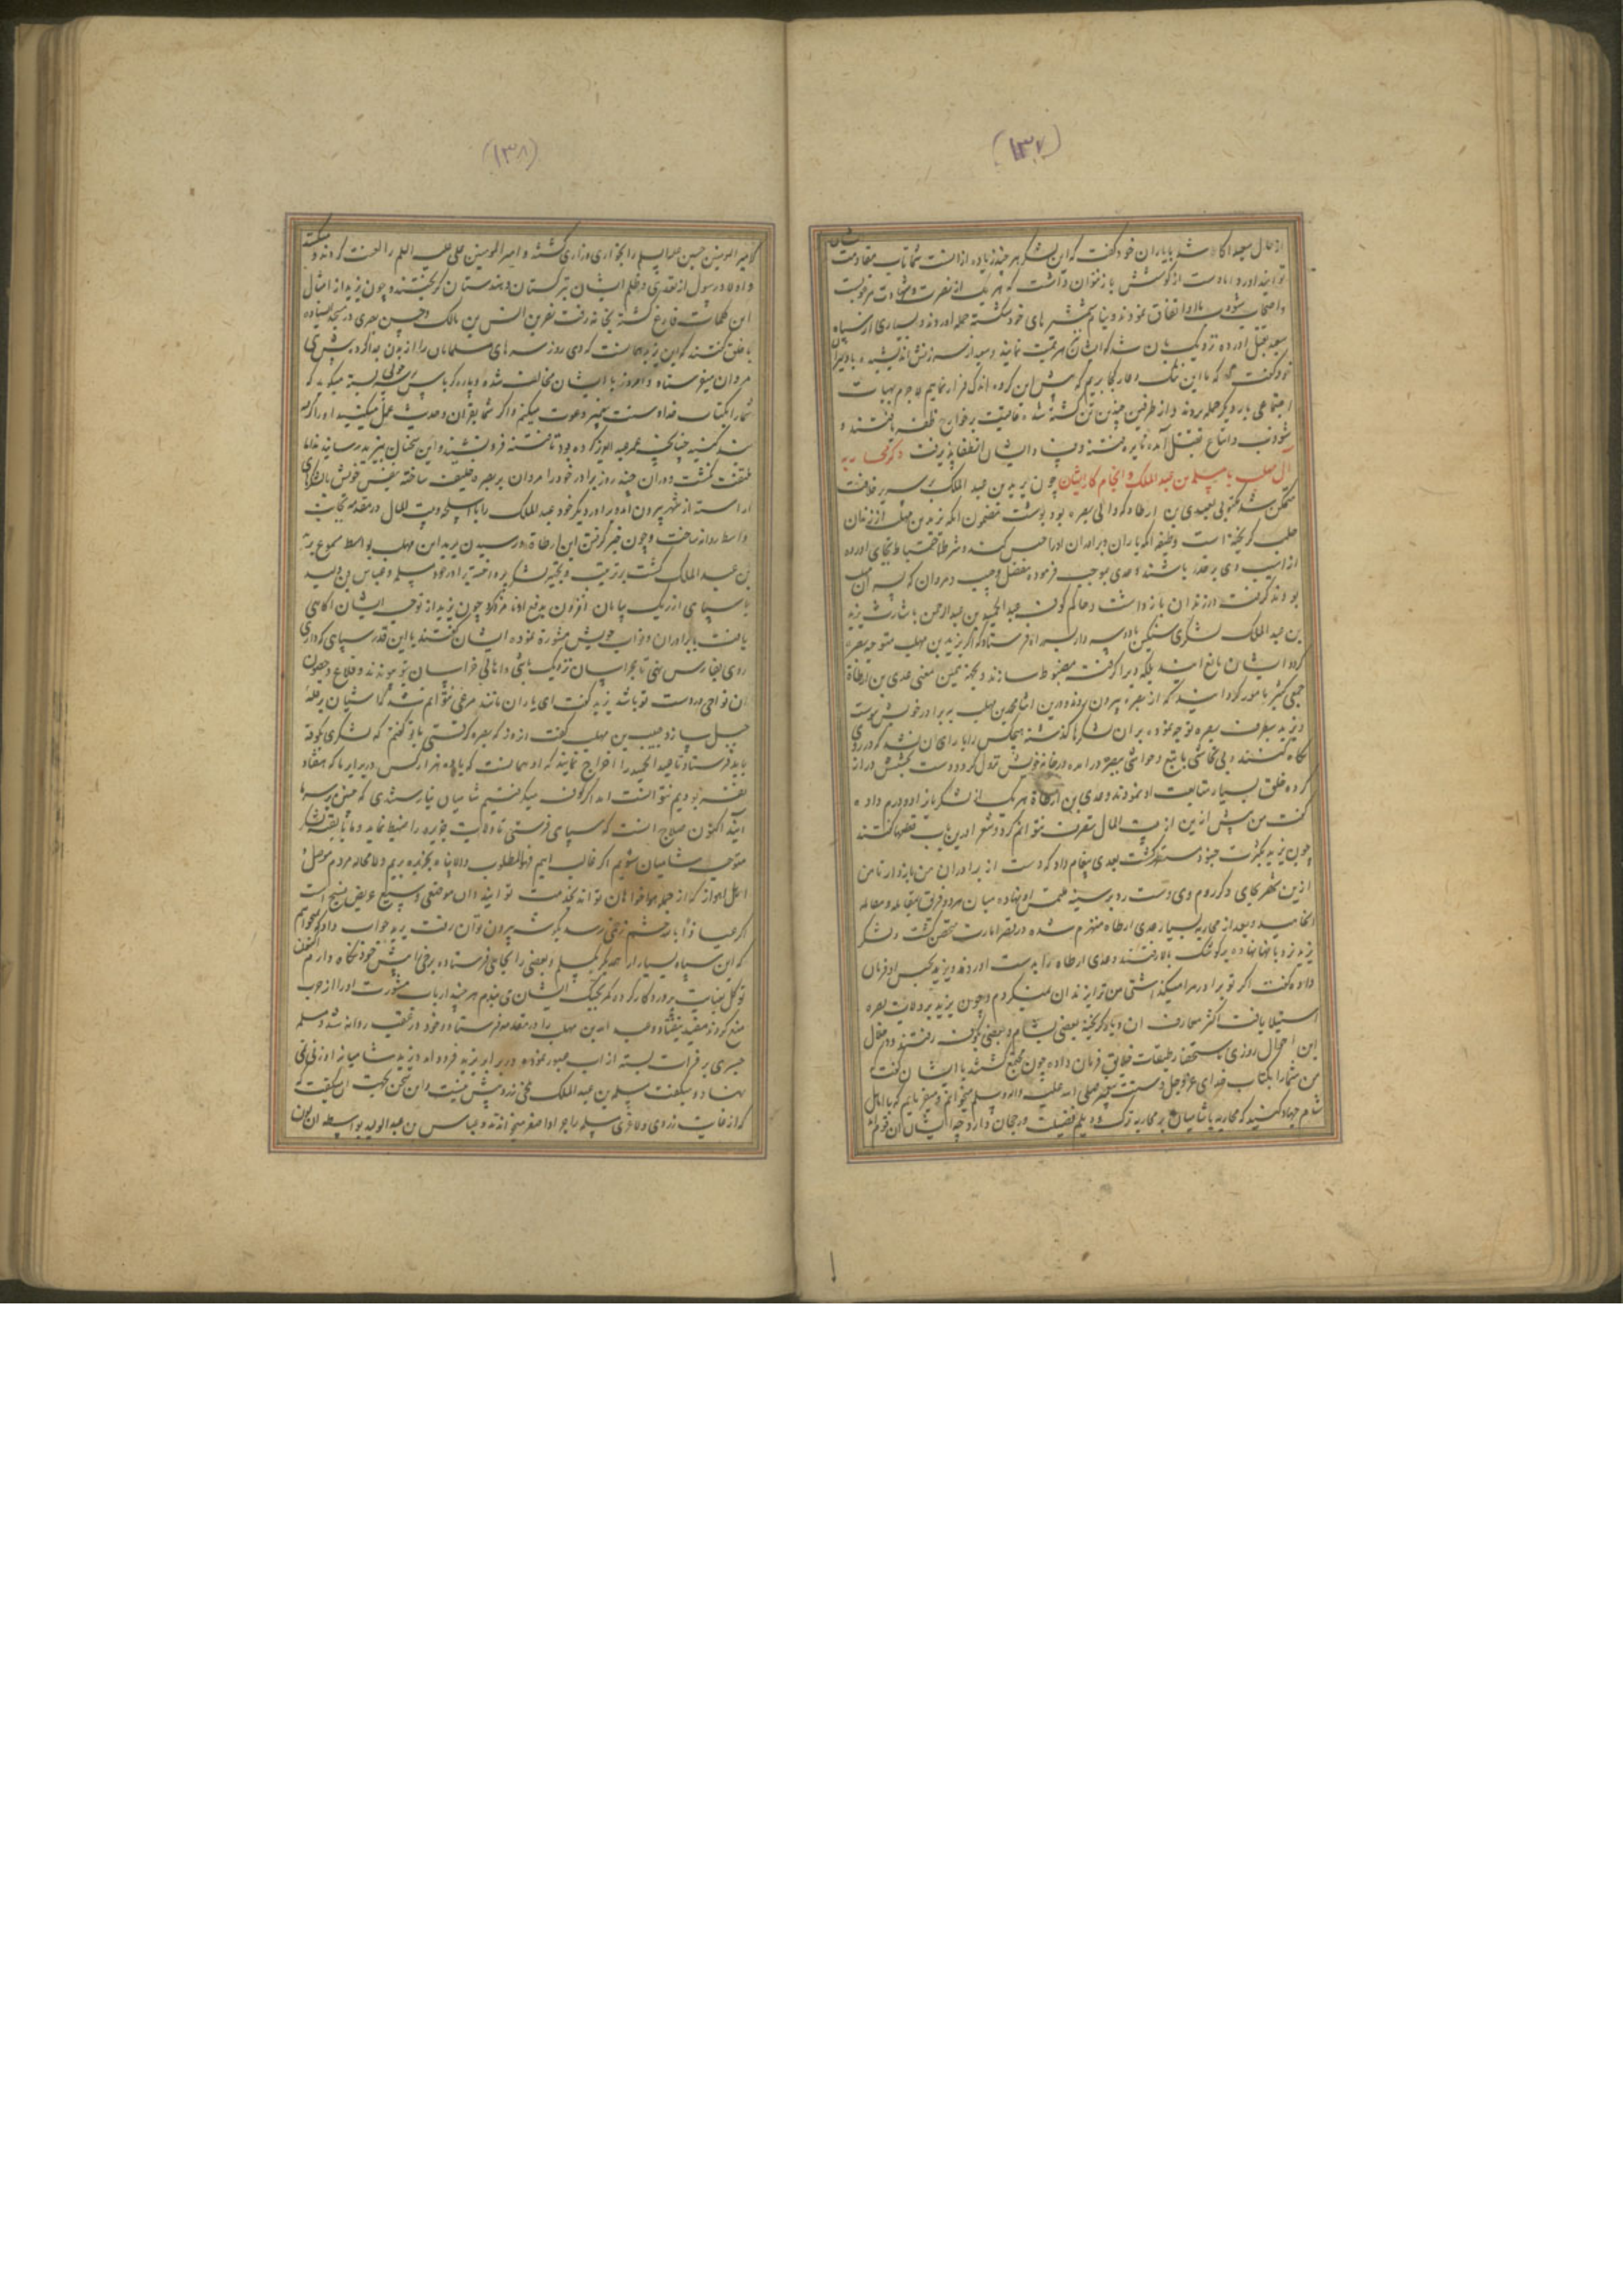 (۱۳۷)
از حال سعید اکاه شد با یاران خود کفت که این لشکر هر چند زیاده از انست که شما تاب مقاومت
شان
توانید اورد اما دست از کوشش باز نتوان داشت که هر یک از نصرت و شهادت مرغوبست
واصحاب شوذب با او اتفاق نمودند و نیام شمشیرهای خود شکسته حمله اوردند و بسیاری از سپاه
سعید بقتل اورده نزدیک بان شد که ایشان هزیمت نمایند و سعید از سرزنش اندیشیده با دلیران
خود کفت که با این ننک و عار کجا بریم که پیش این کروه اندک فرار نماییم لاجرم بهیات
اجتماعی بار دیکر حمله بردند و از طرفین چندین تن کشته شد عاقبت بر خوارج ظفر یافتند و
شوذب و اتباع بقتل آمده نایره فتنه و فساد ایشان انطفا پذیرفت ذکر محاربه
ال مهلب با مسلمه بن عبد الملک و انجام کار ایشان چون یزید بن عبد الملک بر سریر خلافت
متمکن شد مکتوبی بعدی بن ارطاه که والی بصره بود نوشت مضمون انکه یزید بن مهلب از زندان
حلب کریخته است وظیفه انکه یاران و برادران او را حبس کند و شرط احتیاط بجای اورده
از اسیب وی بر حذر باشند و عدی بموجب فرموده مفضل و حبیب و مروان که پسران مهلب
بودند کرفت و در زندان بازداشت و حاکم کوفه عبد الحمید بن عبد الرحمن باشارت یزید
بن عبد الملک لشکری سنکین بادیه فرستاد که اکر یزید بن مهلب متوجه بصره
کردد ایشان مانع ایند بلکه ویرا کرفته مضبوط سازند و بجهة همین معنی عدی بن ارطاة
جمعی کثیر مامور کردانید که از بصره بیرون روند و درین اثنا محمد بن مهلب به برادر خویش پیوست
و یزید بطرف بصره توجه نموده بران لشکرها کذشته هیچکس را یارای ان نشد که در روی
نکاه کنند و بی تحاشی با تبع و حواشی ببصره درامده در خانه خویش نزول کرد و دست بخشش دراز
کرده خلق بسیار متابعت او نمودند و عدی بن ارطاة هر یک از لشکریان را دو درم داده
کفت من پیش ازین از بیت المال تصرف نتوانم کرد و شعرا درین باب قطعها کفتند
چون یزید بکثرت جنود مستظهر کشت بعدی پیغام داد که دست از برادران من بازدار تا من
ازین شهر بجای دیکر روم وی دست رد بر سینه ملتمس او نهاده میان هر دو فریق بمقابله و مقاتله
انجامید و بعد از محاربه بسیار عدی ارطاه منهزم شده در قصر امارت متحصن کشت و لشکر
یزید نردبانها نهاده بر کوشک بالا رفتند و عدی ارطاه را بدست اوردند و یزید بحبس او فرمان
داده کفت اکر تو برادر مرا میکذاشتی من ترا بزندان نمیکردم و چون یزید بر ولایت بصره
استیلا یافت اکثر معارف ان دیار کریخته بعضی بشام و بعضی بکوفه رفتند و در خلال
این احوال روزی باستحضار طبقات خلایق فرمان داده چون مجتمع کشتند با ایشان کفت
من شما را بکتاب خدای عز و جل و سنت پیغمبر صلی الله علیه و اله و سلم میخوانم و میفرمایم که با اهل
شام جهاد کنید که محاربه با شامیان بر محاربه ترک و دیلم فضیلت و رجحان دارد چه ایشان ان قومند
(۱۳۸)
که امیر المومنین حسین علیه السلم را بخواری و زاری کشتند و امیر المومنین علی علیه السلم را لعنت کردند و میکنند
و اولاد رسول از تعدی و ظلم ایشان بترکستان و هندستان کریختند و چون یزید از امثال
این کلمات فارغ کشته بخانه رفت نضر بن انس بن مالک و حسن بصری در مسجد ایستاده
با خلق کفتند که این یزید همانست که دی روز سرهای مسلمانان را از بدن جدا کرده پیش بنی
مروان میفرستاد و امروز با ایشان مخالف شده و پاره کرباس بر چوبی بسته میکوید که
شما را بکتاب خدا و سنت پیغمبر دعوت میکنم و اکر شما بقران و حدیث عمل میکنید او را کرفته
بند کنید چنانچه عمر عبد العزیز کرده بود تا فتنه فرو نشیند و این سخنان بیزید رسانیدند اما
ملتفت نکشت و دران چند روز برادر خود را مروان بر بصره خلیفه ساخته بنفس خویش با لشکرهای
اراسته از شهر بیرون امد و برادر دیکر خود عبد الملک را با اسلحه و بیت المال در مقدمه بجانب
واسط روانه ساخت و چون خبر کرفتن ابن ارطاة و رسیدن یزید ابن مهلب بواسط مسموع یزید
بن عبد الملک کشت بترتیب و تجهیز لشکر پرداخته برادر خود مسلمه و عباس بن ولید
با سپاهی از ریک بیابان افزون بدفع او نامزد کرد چون یزید از توجه ایشان اکاهی
یافت با برادران و نواب خویش مشورة نموده ایشان کفتند با این قدر سپاهی که داری
روی بفارس نهی تا بخراسان نزدیک باشی و اهالی خراسان بتو پیوندند و قلاع و حصون
ان نواحی در دست تو باشد یزید کفت ای یاران مانند مرغی نتوانم شد که اشیان بر قلهٔ
جبل سازد حبیب بن مهلب کفت ان روز که بصره کرفتی با تو کفتم که لشکری بکوفه
باید فرستاد تا عبد الحمید را اخراج نمایند که او همانست که با پانزده هزار کس در برابر ما که هفتاد
نفر بودیم نتوانست امد اکر کوفه میکرفتیم شامیان نیارستندی که پیش بر سر ما
ایند اکنون صلاح انست که سپاهی فرستی تا ولایت جزیره را ضبط نماید و ما با بقیه لشکر
متوجه شامیان شویم اکر غالب اییم فهو المطلوب والا پناه بجزیره بریم و لا محاله مردم موصل و
اهل اهواز که از جمله هواخواهان تو اند بخدمت تو ایند و ان موضعی وسیع عریض فسیح است
اکر عیاذا بالله چشم زخمی رسد بکوشه بیرون توان رفت یزید جواب داد که نمیخواهم
که این سپاه بسیار از هم دیکر بکسلم و بعضی را بجایی فرستاده برخی را پیش خود نکاه دارم اکنون
توکل بعنایت پروردکار کرده که بجنک ایشان می روم هر چند ارباب مشورت او را از حرب
منع کردند مفید نیفتاد و عبد الله بن مهلب را در مقدمه فرستاد و خود در عقب روانه شد و مسلمه
جسری بر فرات بسته از اب عبور نموده در برابر یزید فرود امد و یزید شامیانه او زنی می
نهاد و میکفت مسلمه بن عبد الملک ملخی زرد بیش نیست و این سخن بجهت ان میکفت
که از غایت زردی و لاغری مسلمه را جراده اصفر میخواندند و عباس بن عبد الولید بواسطه ان چون